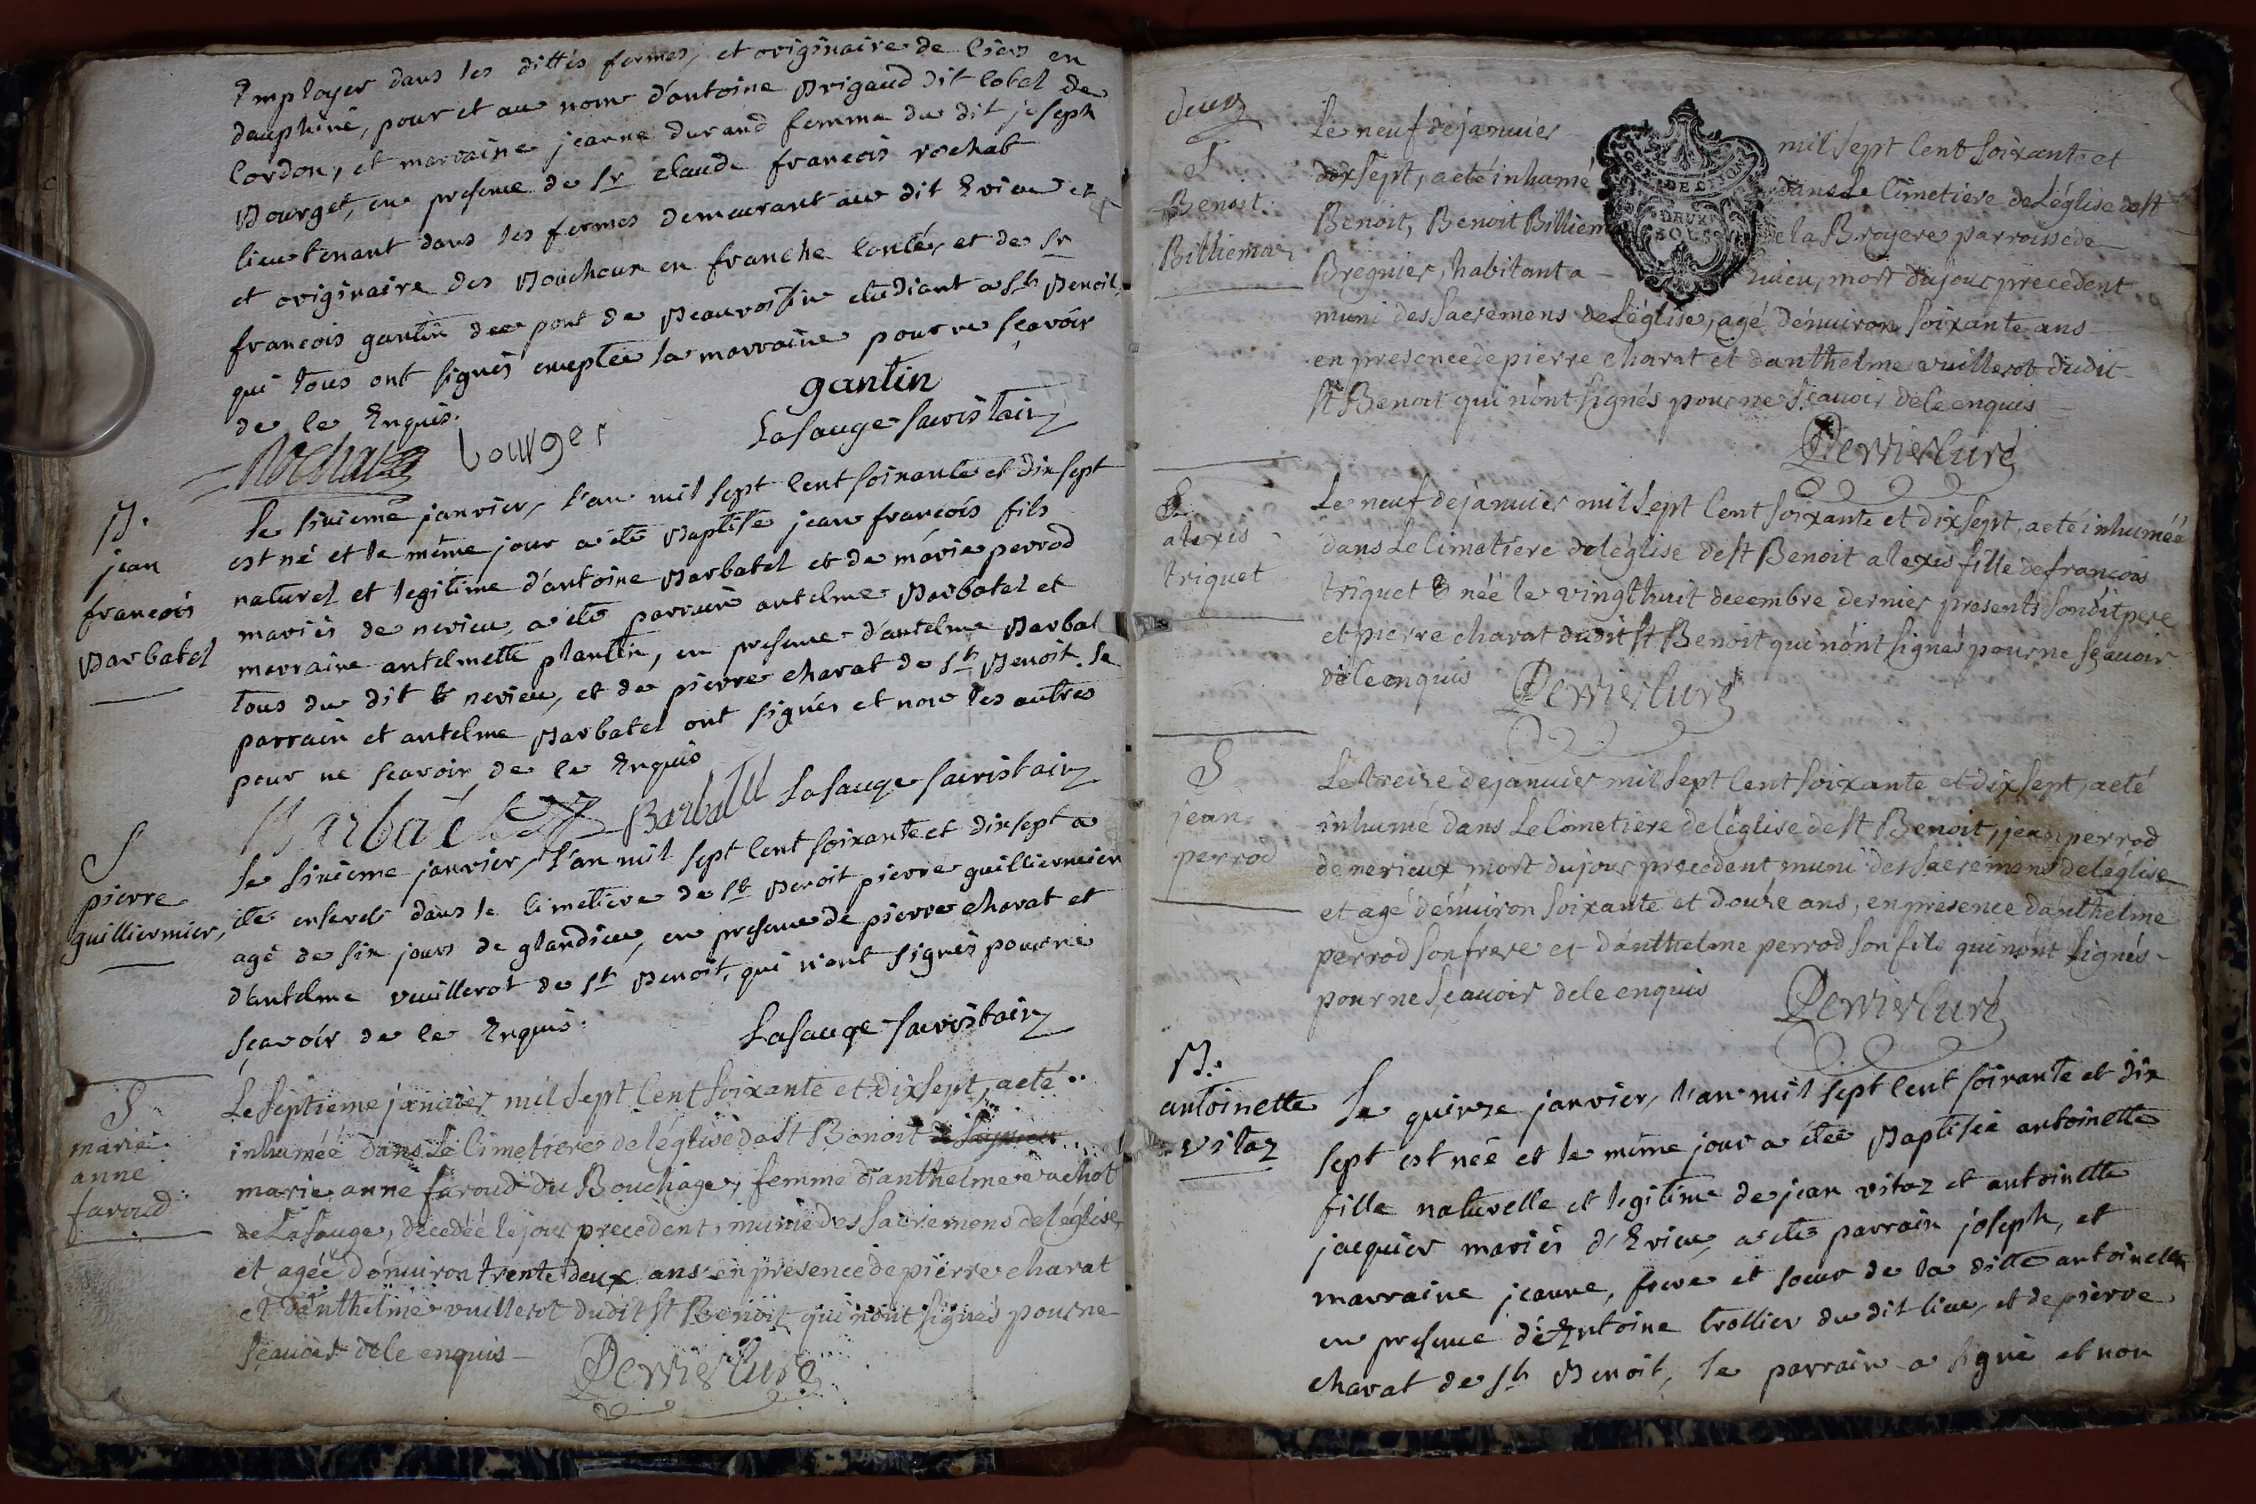 Employer dans les dittes fermes, et originaire de Liers en
dauphiné, pour et au nom d'antoine Brigaud dit lobel de
Cordon, et marraine jeanne durand femme du dit joseph
Bourget, en presence de Sr claude francois rochat
lieutenant dans les fermes demeurant au dit Evieu et
et originaire des Boucheux en franche Conté, et de Sr
francois gantin du pont de Beauvoisin etudiant a St Benoit,
qui tous ont signés exceptée la marraine pour ne sçavoir
de ce Enquis.
gantin
Rochat bourget Lasauge sacristain
B.
jean
francois
Barbatel
Le sixieme janvier, l'an mil sept cent soixante et dix sept
est né et le même jour a été Baptisé jean francois fils
naturel et legitime d'antoine Barbatel et de marie perrod
mariés de nevieu, a été parrain antelme Barbatel et
marraine antelmette plantin, en presence d'antelme Barbat
tous du dit nevieu, et de pierre charat de St Benoit. Le
parrain et antelme Barbatel ont signés et non les autres
pour ne scavoir de ce Enquis
Barbatel Barbatel Lasauge sacristain
S
pierre
guilliermier,
Le sixieme janvier, l'an mil sept cent soixante et dix sept a
été enseveli dans le cimetiere de St Benoit pierre guilliermier
agé de six jours de glandieu, en presence de pierre charat et
d'antelme vuillerot de St Benoit, qui n'ont signés pour ne
sçavoir de ce Enquis.
Lasauge sacristain
S
marie
anne
faroud
Le septieme janvier mil sept Cent soixante et dix sept, a eté
inhuméé dans Le Cimetiere de léglise de st Benoit
marie anne faroud du Bouchage, femme d'anthelme vachot
de Lasauge, decedéé le jour precedent, munie des sacremens de léglise,
et agéé d'énuiron trente deux ans en présence de pierre charat
et d'anthelme vuillerot dudit st Benoit qui n'ont signés pour ne
sçauoir de ce enquis
Perrier Curé
deux
S
Benoit
Billiemaz
Le neuf de januier mil sept Cent soixante et
dix sept, a eté inhumé dans Le Cimetiere de Léglise de st
Benoit, Benoit Billiem de la Broyere parroisse de
Bregnier, habitant a uieu, mort du jour precedent
muni des sacremens de Léglise, agé d'énuiron soixante ans
en presence de pierre charat et d'anthelme vuillerot dudit
st Benoit qui n'ont signés pour ne sçauoir de ce enquis
Perrier Curé
S
alexis
triquet
Le neuf de januier mil sept Cent soixante et dix sept, a eté inhuméé
dans Le Cimetiere de léglise de st Benoit alexis fille de francois
triquet néé le vingt huit decembre dernier presents son dit pere
et pierre charat dudit st Benoit qui n'ont signés pour ne sçauoir
de ce enquis Perrier Curé
S
jean
perrod
Le treize de januier mil sept Cent soixante et dix sept, a eté
inhumé dans Le Cimetiere de léglise de st Benoit, jean perrod
de nerieux mort du jour precedent muni des sacremens de léglise
et agé d'énuiron soixante et douze ans, en présence d'anthelme
perrod son frere et d'anthelme perrod son fils qui n'ont signés
pour ne sçauoir de ce enquis Perrier Curé
B.
antoinette
vitoz
Le quinze janvier, l'an mil sept cent soixante et dix
sept est néé et le même jour a étéé Baptisée antoinette
fille naturelle et legitime de jean vitoz et antoinette
jacquier mariés d'Evieu, a été parrain joseph, et
marraine jeanne, frere et soeur de la ditte antoinette
en presence d'Antoine trollier du dit lieu, et de pierre
charat de St Benoit, le parrain a signé et non